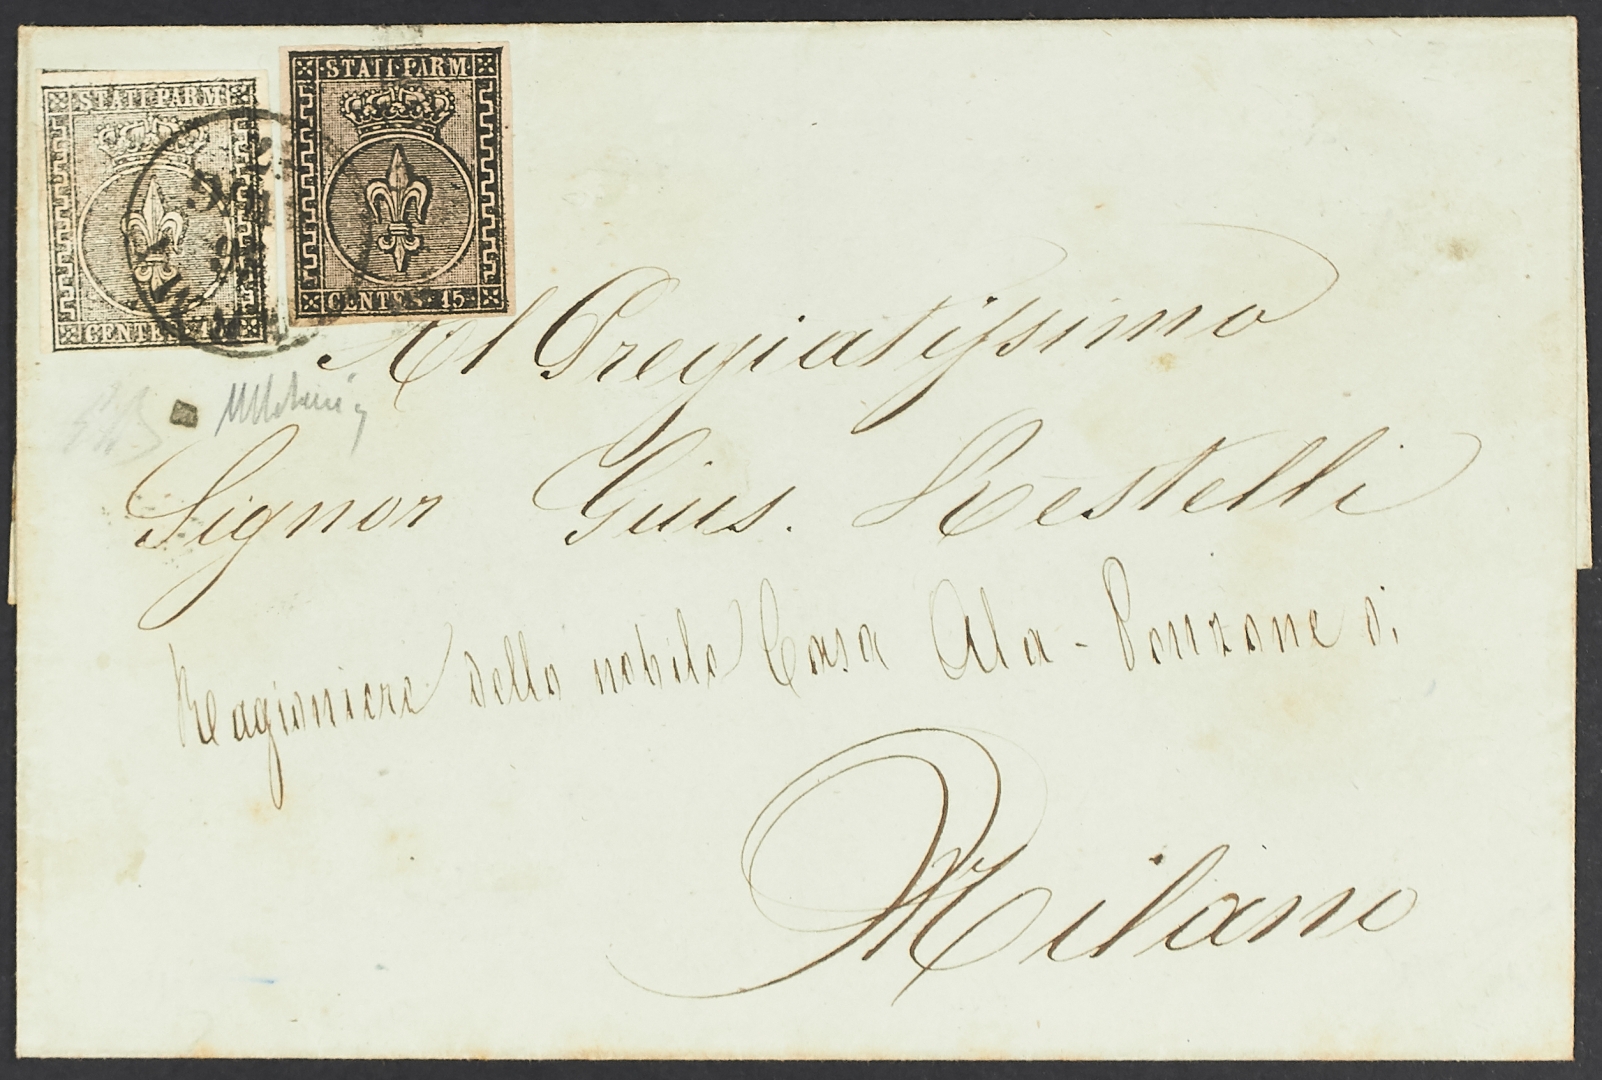 STATI PARM
STATI PARM
CENTES. 15
CENTES. 10
Al Pregiatissimo
Signor Gius. Restelli
Ragioniere della nobile Casa Ala-Ponzone di
Milano